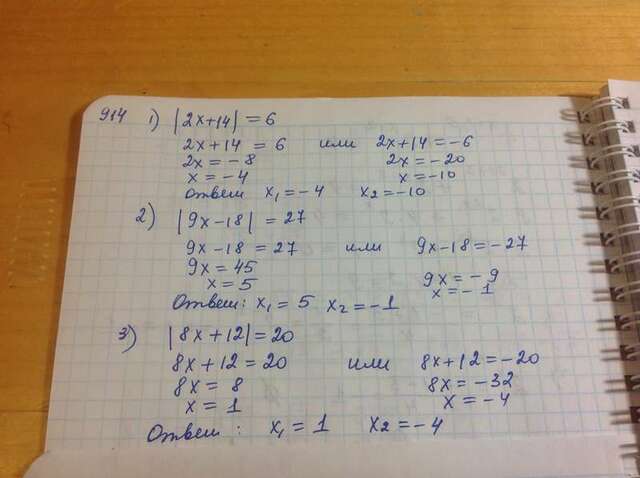 914 1) |2x+14| = 6
2x+14 = 6 или 2x+14 = -6
2x = -8 2x = -20
x = -4 x = -10
ответ x₁ = -4 x₂ = -10
2) |9x-18| = 27
9x-18 = 27 или 9x-18 = -27
9x = 45 9x = -9
x = 5 x = -1
Ответ: x₁ = 5 x₂ = -1
3) |8x+12| = 20
8x+12 = 20 или 8x+12 = -20
8x = 8 8x = -32
x = 1 x = -4
Ответ: x₁ = 1 x₂ = -4